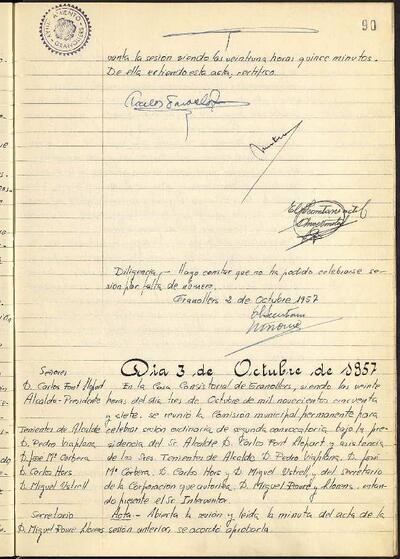 AYUNTAMIENTO
GRANOLLERS
90
vanta la sesion siendo las veintiuna horas quince minutos.
De ella extiendo esta acta, certifico.
Diligencia,- Hago constar que no ha podido celebrarse se-
sion por falta de número.
Granollers 2 de Octubre 1957
Día 3 de Octubre de 1957
Señores
D. Carlos Font Llopart
Alcalde-Presidente
Tenientes de Alcalde
D. Pedro Viaplana
D. José Mª Corbera
D. Carlos Hors
D. Miguel Ustrell
Secretario
D. Miguel Bowé Llorens
En la Casa Consistorial de Granollers, siendo las veinte
horas del dia tres de Octubre de mil novecientos cincuenta
y siete, se reunió la Comision municipal permanente para
celebrar sesion ordinaria de segunda convocatoria, bajo la pre-
sidencia del Sr. Alcalde D. Carlos Font Llopart y asistencia
de los Sres. Tenientes de Alcalde D. Pedro Viaplana, D. José
Mª Corbera, D. Carlos Hors y D. Miguel Ustrell, y del secretario
de la Corporación que autoriza, D. Miguel Bowé y Llorens, estan-
do presente el Sr. Interventor.
Acta - Abierta la sesion y leida la minuta del acta de la
sesion anterior, se acordó aprobarla.